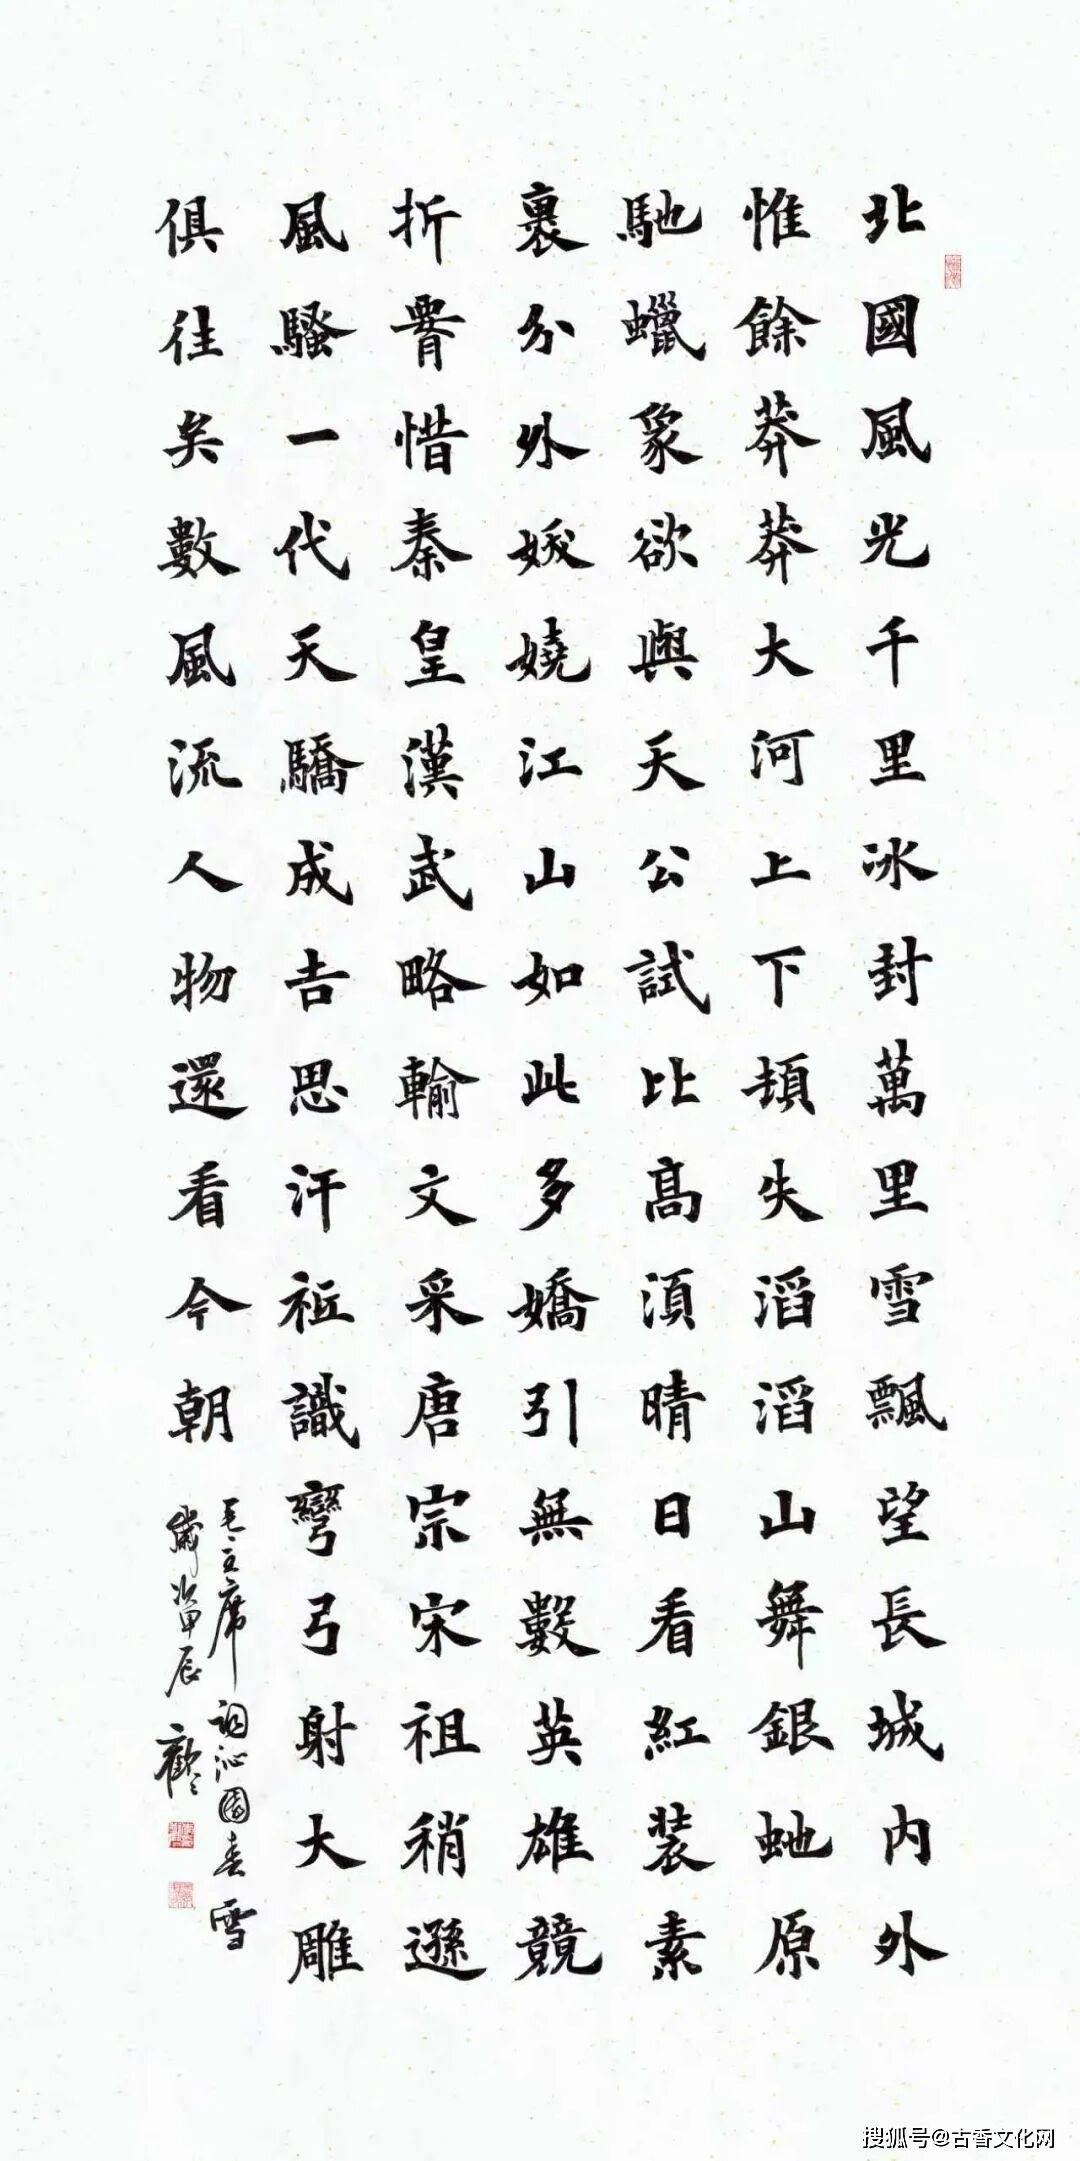 北國風光千里冰封萬里雪飄望長城内外
惟餘莽莽大河上下頓失滔滔山舞銀虵原
馳蠟象欲與天公試比高須晴日看紅装素
裹分外妖嬈江山如此多嬌引無數英雄競
折腰惜秦皇漢武略輸文采唐宗宋祖稍遜
風騷一代天驕成吉思汗祗識彎弓射大雕
俱往矣數風流人物還看今朝
毛主席詞沁園春雪
歲次甲辰
搜狐号@古香文化网